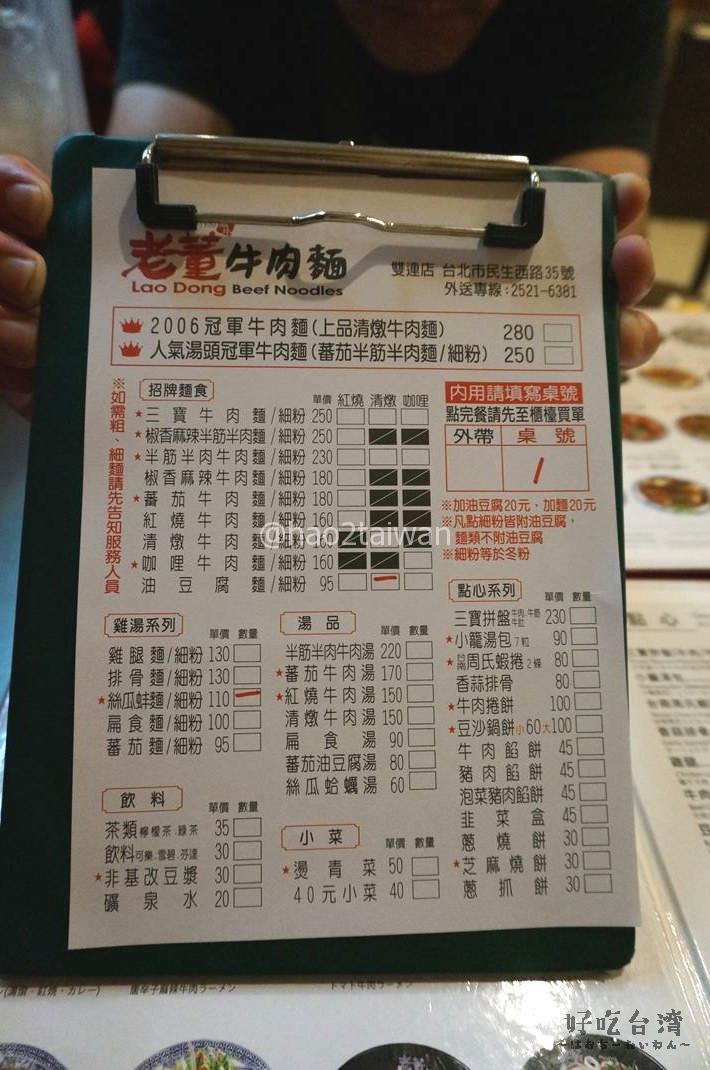 老董牛肉麵
Lao Dong Beef Noodles
雙連店 台北市民生西路35號
外送專線:2521-6381
2006冠軍牛肉麵(上品清燉牛肉麵) 280
人氣湯頭冠軍牛肉麵(蕃茄半筋半肉麵/細粉) 250
※如需粗、細麵請先告知服務人員
招牌麵食 單價 紅燒 清燉 咖哩
★三寶牛肉麵/細粉 250
★椒香麻辣半筋半肉麵/細粉 250
★半筋半肉牛肉麵/細粉 230
椒香麻辣牛肉麵/細粉 180
★蕃茄牛肉麵/細粉 180
紅燒牛肉麵/細粉 160
清燉牛肉麵/細粉 160
★咖哩牛肉麵/細粉 160
油豆腐麵/細粉 95
內用請填寫桌號
點完餐請先至櫃檯買單
外帶 桌號
※加油豆腐20元、加麵20元
※凡點細粉皆附油豆腐,
麵類不附油豆腐
※細粉等於冬粉
@hao2taiwan
雞湯系列 單價 數量
雞腿麵/細粉 130
排骨麵/細粉 130
★絲瓜蚌麵/細粉 110
扁食麵/細粉 100
蕃茄麵/細粉 95
湯品 單價 數量
半筋半肉牛肉湯 220
★蕃茄牛肉湯 170
★紅燒牛肉湯 150
清燉牛肉湯 150
扁食湯 90
蕃茄油豆腐湯 80
絲瓜蛤蠣湯 60
點心系列 單價 數量
三寶拼盤 牛肉、牛筋 牛肚 230
★小籠湯包 7粒 90
★周氏蝦捲 2條 80
香蒜排骨 80
★牛肉捲餅 100
★豆沙鍋餅 小60大100
牛肉餡餅 45
豬肉餡餅 45
泡菜豬肉餡餅 45
韭菜盒 45
蔥燒餅 30
★芝麻燒餅 30
蔥抓餅 30
飲料 單價 數量
茶類 檸檬茶.綠茶 35
飲料 可樂.雪碧.芬達 30
★非基改豆漿 30
礦泉水 20
小菜 單價 數量
★燙青菜 50
40元小菜 40
點心
(清燉・紅燒・カレー)
唐辛子麻辣牛肉ラーメン
トマト牛肉ラーメン
好吃台湾
~はおちーたいわん~